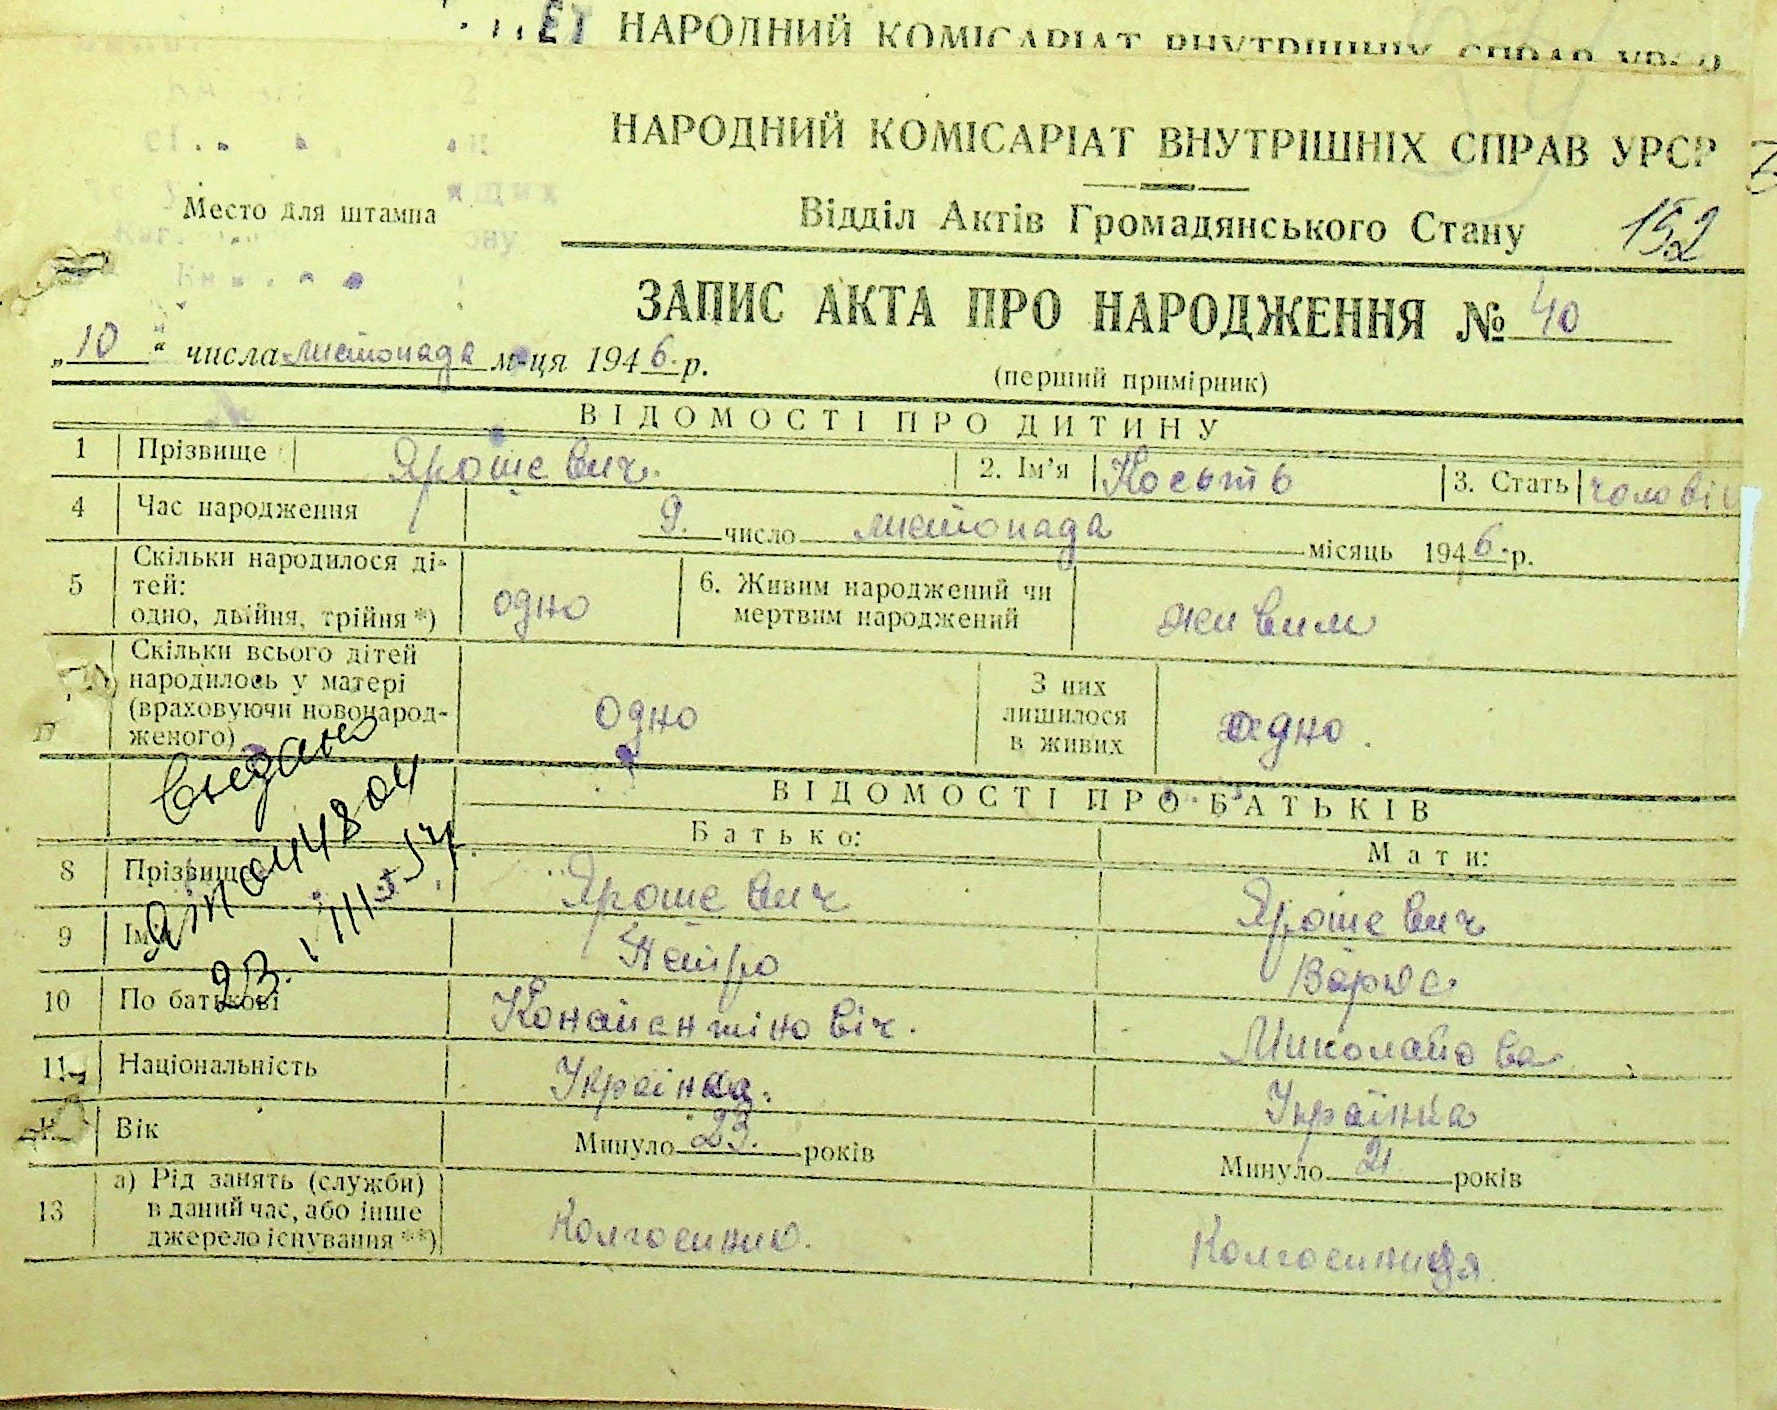 НАРОДНИЙ КОМІСАРІАТ ВНУТРІШНІХ СПРАВ УРСР
НАРОДНИЙ КОМІСАРІАТ ВНУТРІШНІХ СПРАВ УРСР
Место для штампа
Відділ Актів Громадянського Стану 152
ЗАПИС АКТА ПРО НАРОДЖЕННЯ № 40
„10“ числа листопада м-ця 1946 р.
(перший примірник)
ВІДОМОСТІ ПРО ДИТИНУ
1 Прізвище Ярошевич. 2. Ім'я Косьть 3. Стать чолові
4 Час народження 9. число листопада місяць 1946 р.
5 Скільки народилося ді-
тей:
одно, двійня, трійня *) одно 6. Живим народжений чи
мертвим народжений живим
Скільки всього дітей
народилось у матері
(враховуючи новонарод-
женого) одно З них
лишилося
в живих одно.
Видано
23.
ВІДОМОСТІ ПРО БАТЬКІВ
Батько: Мати:
8 Прізвище Ярошевич Ярошевич
9 Ім'я Петро
10 По батькові Миколайова
11 Національність Українка
Вік Минуло 23. років Минуло 21 років
13 а) Рід занять (служби)
в даний час, або інше
джерело існування **) Колгоспниця